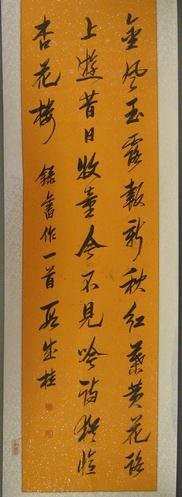 金风玉露报新秋红叶黄花路
上游昔日牧童今不见吟诗独临
杏花楼 录旧作一首 段成桂